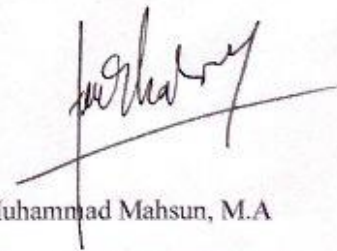 Muhammad Mahsun, M.A